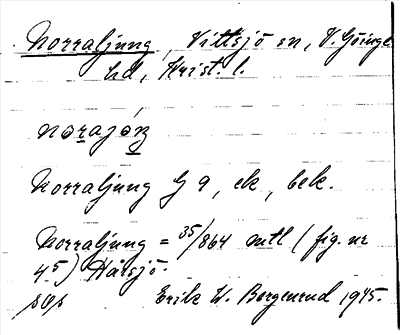 Norraljung, Vittsjö sn, V. Göinge
hd, Krist. l.
norajóŋ
Norraljung G 9, ek, bek.
Norraljung = 35/864 mtl (fig. nr
45) Hårsjö.
Erik W. Borgenrud 1945.